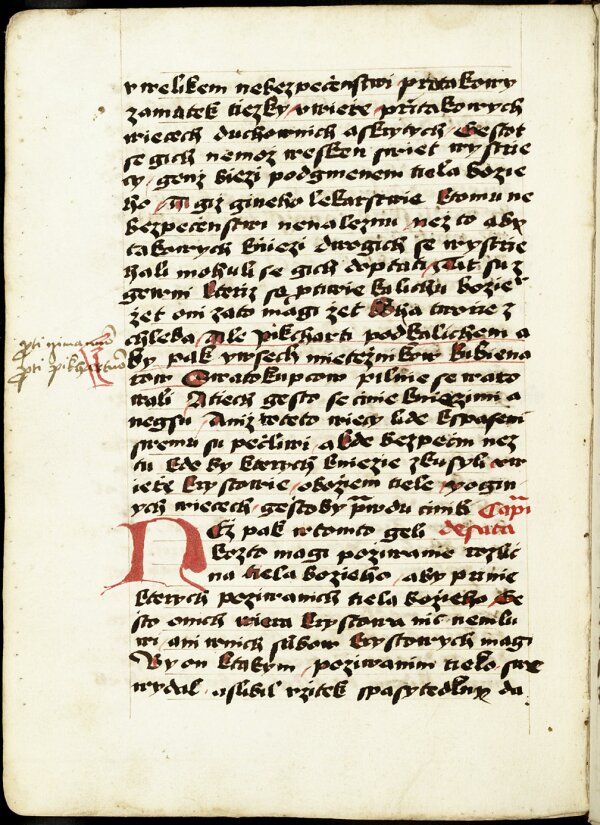 v welikem nebezpečenstwi přitakowy
zamatek tiezky / v wiere / přitakowych
wiecech duchownich a skrytych / Gesto t
se gich nemoz wesken swiet wystrie
cy / genz biezi pod gmenem tiela bozie
ho / A giz gineho lekarstwie komu ne
bezpecenstwi nenaleznu / nez to aby
takowych kniezi drogich se wystrie
hali mohuli se gich doptati / Tit su z
gewni kteriz so prawie kalichu bozie
zet oni zato magi zet boha tworie z
chleba / Ale pikcharti pod kalichem a
by pak wssech mieteznikow kubiena
row Swatokupcow pilnie se waro
wali A tiech gesto se cinie kniezimi a
negsu / A niz w teto wiecy lide k spaseni
swemu su pečliwi a kde bezpečni nez
tu kde by kterych kniezie zkusyli w w
iere krystowie / o boziem tiele / y o gin
ych wiecech / gesto by prawdu cinili Capi
NEz pak w tomto geli desata
kozto magi poziwanie rozlic
na tiela bozieho / aby pr nie
kterych poziwanich tiela bozieho / Ge
sto o nich wiera krystowa nic nemlu
wi / ani w nich slibow krystowych magi
By on k takym / poziwanim tielo swe
wydal / a slibil vzitek spasytedlny da